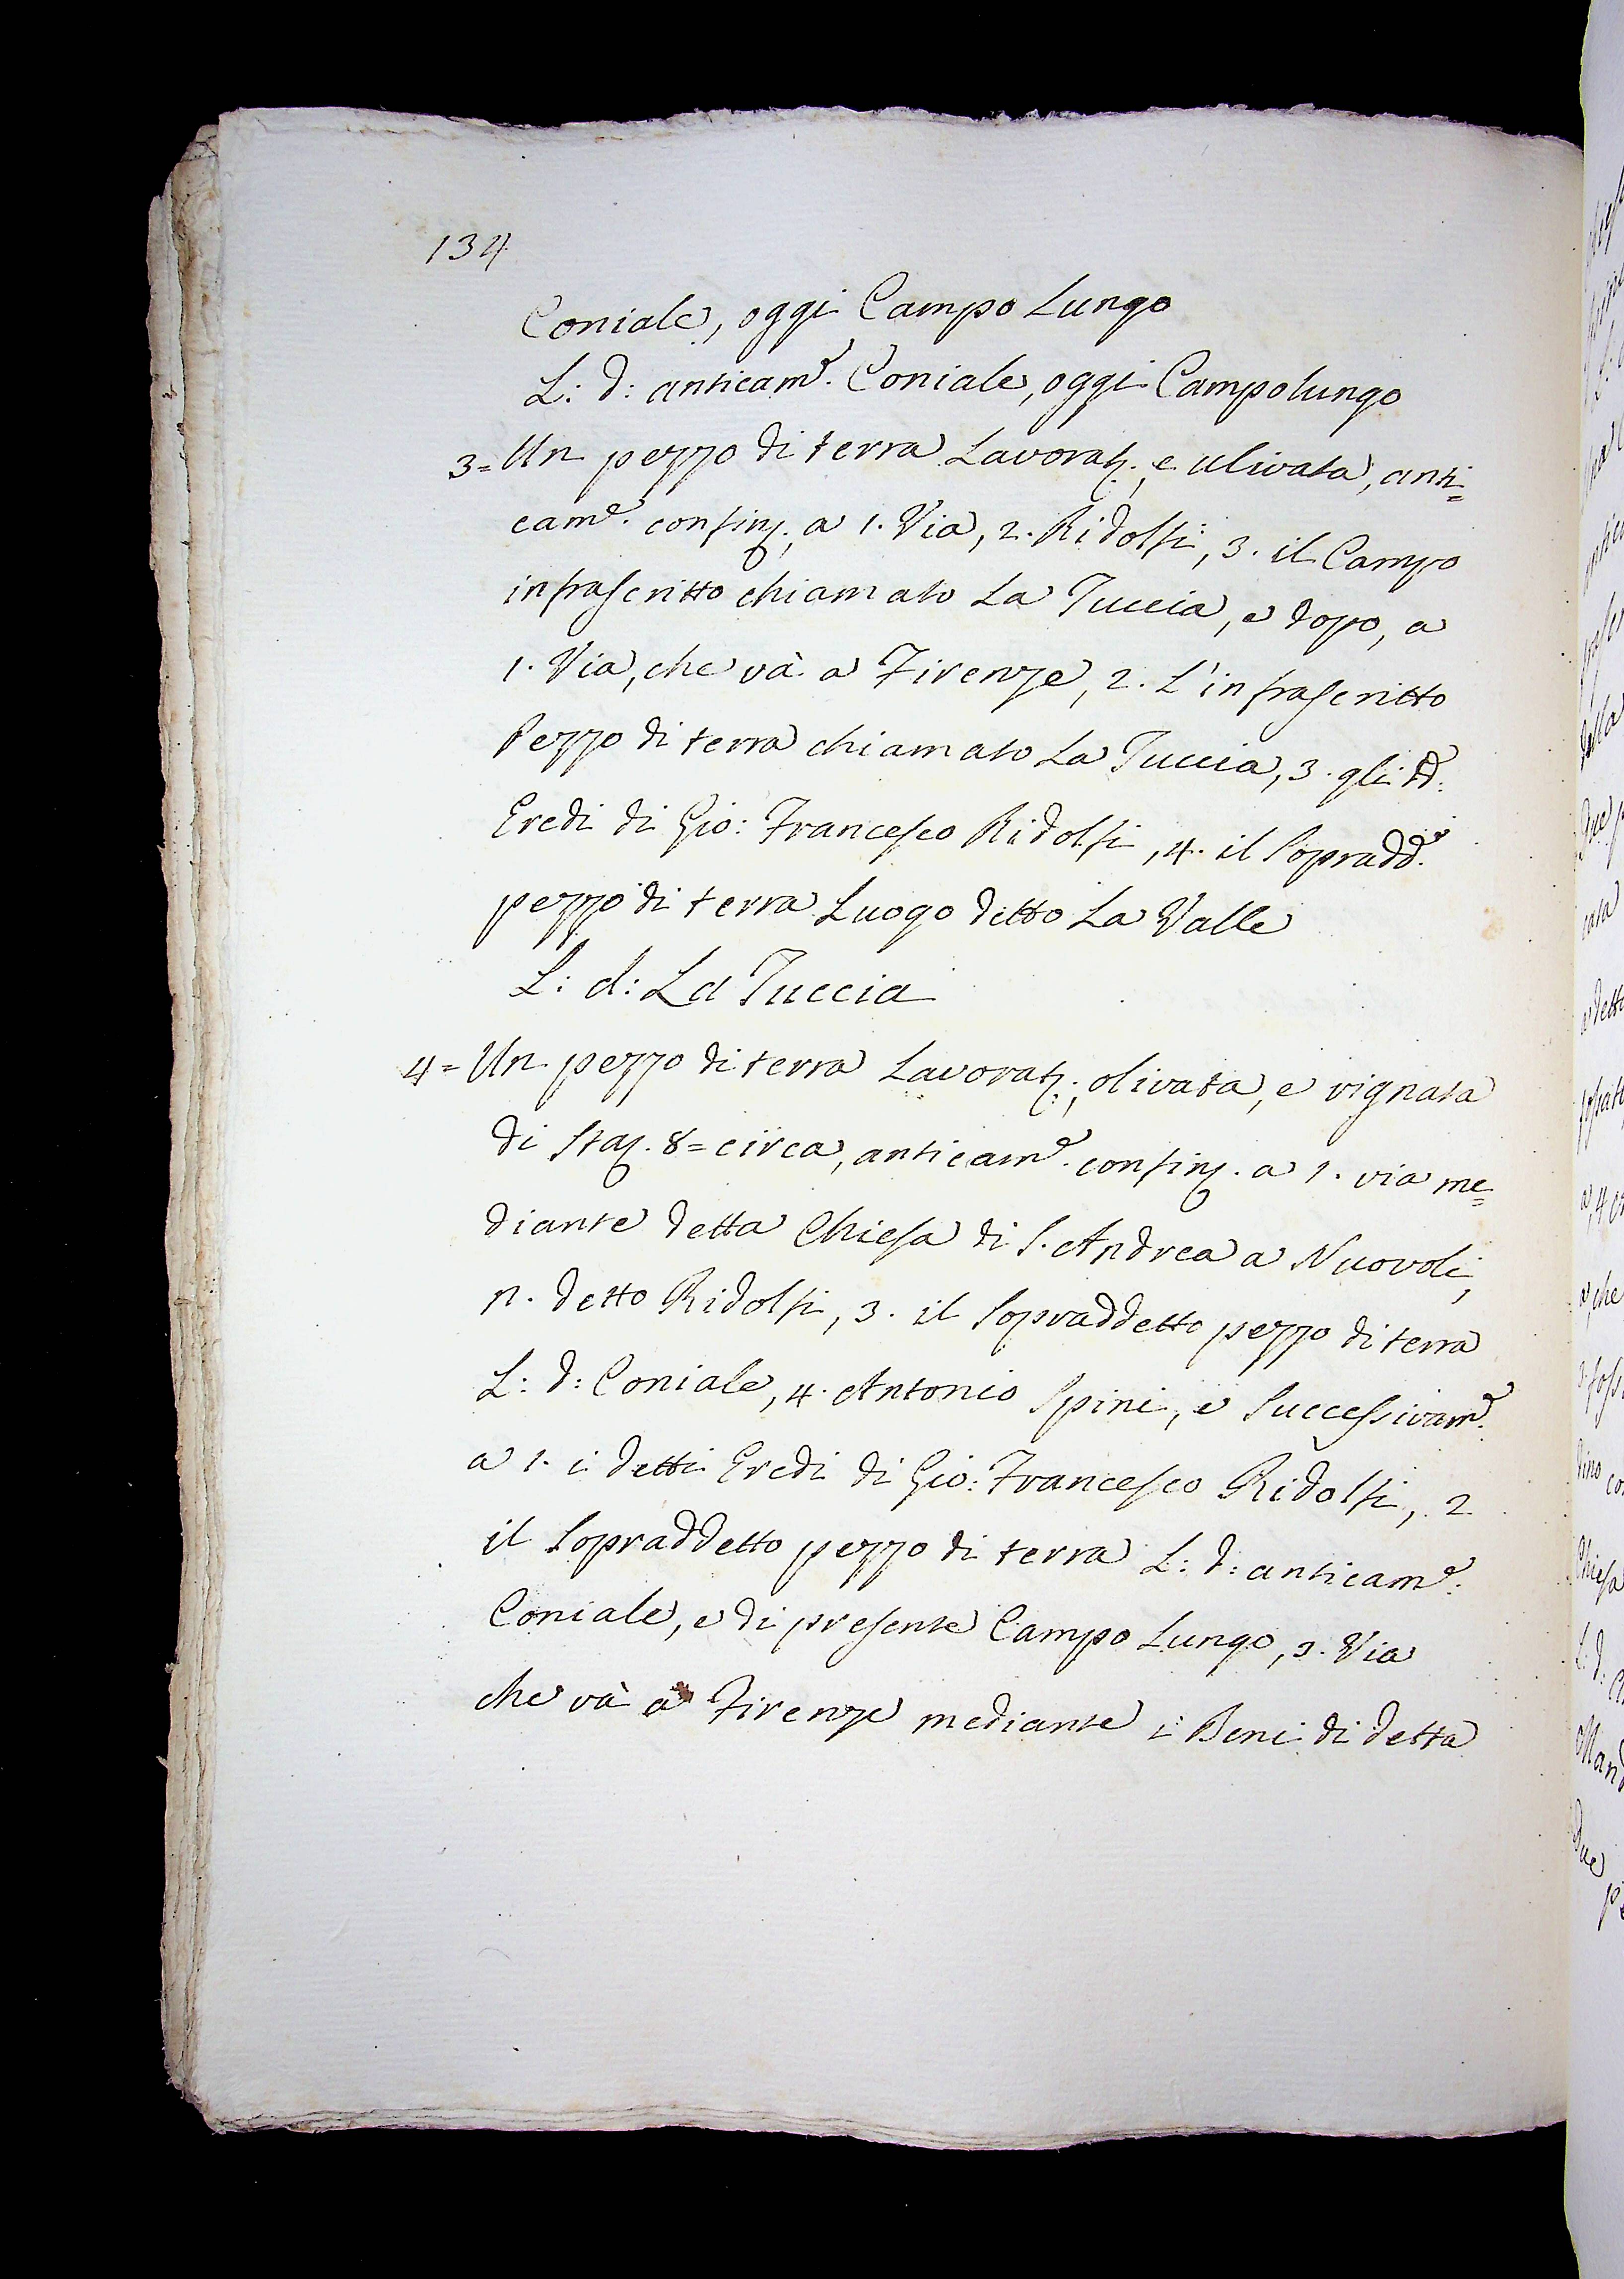 134
Coniale, oggi Campo Lungo
L: d: anticam.e Coniale, oggi Campolungo
3= Un pezzo di terra Lavorat.; e ulivata, anti=
cam.e confin.; a 1. Via, 2. Ridolfi, 3. il Campo
infrascritto chiamato La Tuccia, e dopo, a
1. Via, che và a Firenze, 2. L'infrascritto
Pezzo di terra chiamato La Tuccia, 3. gli dd:
Eredi di Gio: Francesco Ridolfi, 4. il Sopradd.o
pezzo di terra Luogo detto La Valle
L: d: La Tuccia
4= Un pezzo di terra Lavorat.; olivata, e vignata
di Sta. 8= circa, anticam.e confin. a 1. via me=
diante detta Chiesa di S. Andrea a Nuovoli,
n. detto Ridolfi, 3. il Sopraddetto pezzo di terra
L: d: Coniale, 4. Antonio Spini, e Successivam.e
a 1. i detti Eredi di Gio: Francesco Ridolfi, 2
il Sopraddetto pezzo di terra L: d: anticam.e:
Coniale, e di presente Campo Lungo, 3. Via
che và a Firenze mediante i Beni di detta